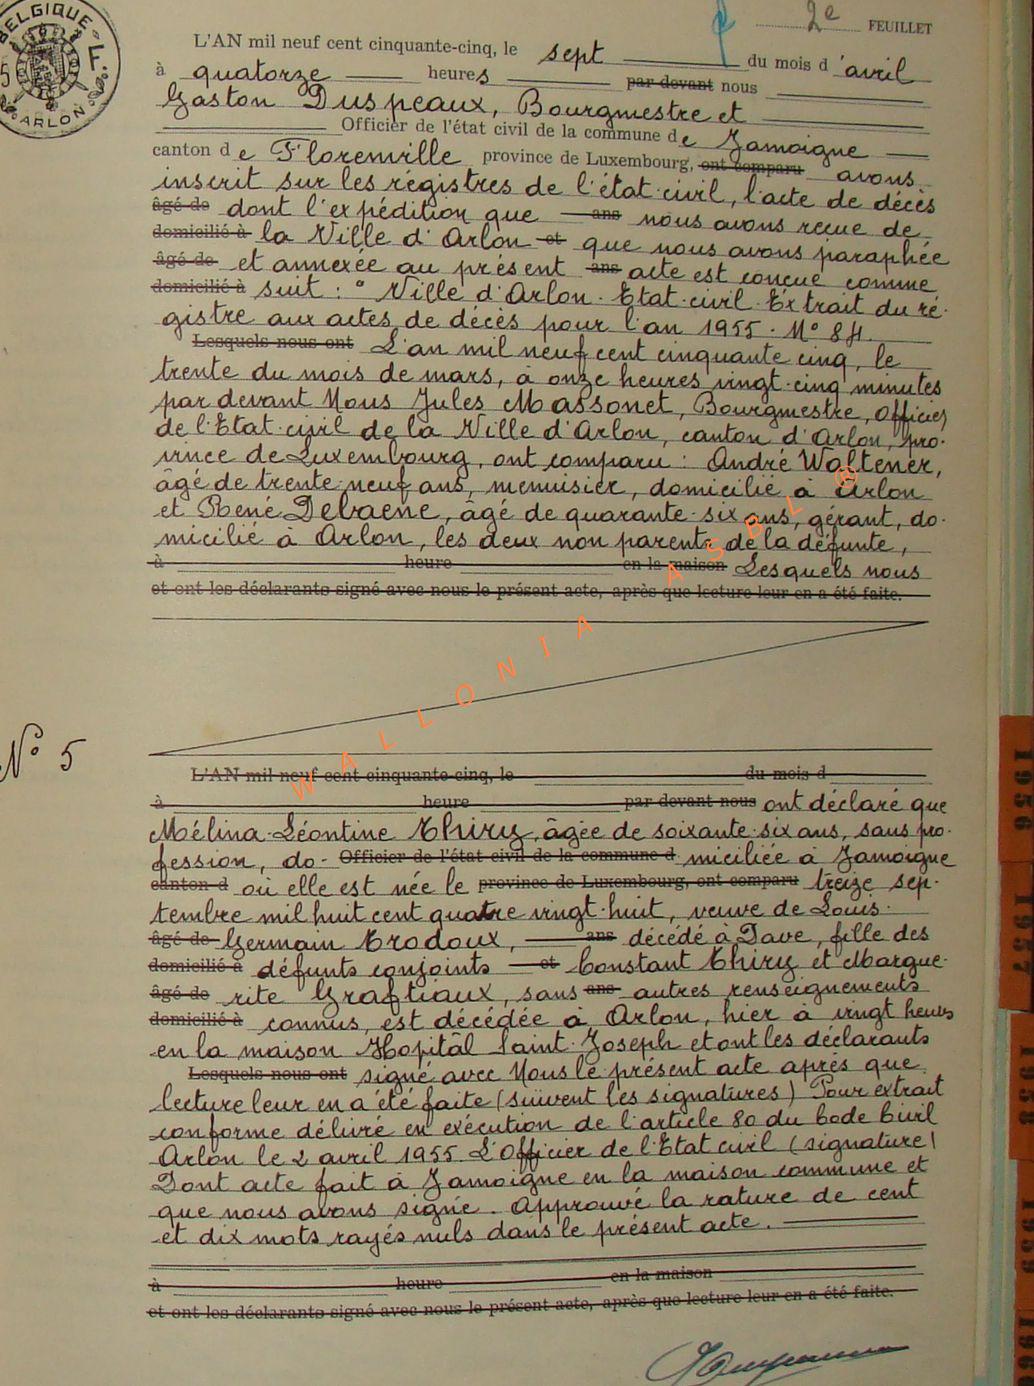 BELGIQUE - F.
5
ARLON
2e FEUILLET
L'AN mil neuf cent cinquante-cinq, le sept du mois d'avril
à quatorze heures par devant nous
Gaston Duspeaux, Bourgmestre et
Officier de l'état civil de la commune de Jamoigne
canton de Florenville province de Luxembourg, ont comparu avons
inscrit sur les régistres de l'état-civil, l'acte de décès
âgé de dont l'expédition que ans nous avons reçue de
domicilié à la Ville d'Arlon et que nous avons paraphée
âgé de et annexée au présent ans acte est conçue comme
domicilié à suit : " Ville d'Arlon. Etat-civil. Extrait du ré-
gistre aux actes de décès pour l'an 1955. N° 84.
Lesquels nous ont L'an mil neuf cent cinquante cinq, le
trente du mois de mars, à onze heures vingt-cinq minutes
par devant Nous Jules Massonet, Bourgmestre, Officier
de l'Etat-civil de la Ville d'Arlon, canton d'Arlon, pro-
vince de Luxembourg, ont comparu : André Waltener,
âgé de trente-neuf ans, menuisier, domicilié à Arlon
et René Debaene, âgé de quarante-six ans, gérant, do-
micilié à Arlon, les deux non parents de la défunte,
à heure en la maison Lesquels nous
et ont les déclarants signé avec nous le présent acte, après que lecture leur en a été faite.
WALLONIA ASBL ®
N° 5
L'AN mil neuf cent cinquante-cinq, le du mois d
à heure par devant nous ont déclaré que
Mélina-Léontine Thiry, âgée de soixante-six ans, sans pro-
fession, do- Officier de l'état civil de la commune d miciliée à Jamoigne
canton d où elle est née le province de Luxembourg, ont comparu treize sep-
tembre mil huit cent quatre vingt-huit, veuve de Louis-
âgé de Germain Trodoux, ans décédé à Dave, fille des
domicilié à défunts conjoints et Constant Thiry et Margue-
âgé de rite Graftiaux, sans ans autres renseignements
domicilié à connus, est décédée à Arlon, hier à vingt heures
en la maison Hopital Saint-Joseph et ont les déclarants
Lesquels nous ont signé avec Nous le présent acte après que
lecture leur en a été faite (suivent les signatures) Pour extrait
conforme délivré en exécution de l'article 80 du Code Civil
Arlon le 2 avril 1955. L'Officier de l'Etat civil (signature)
Dont acte fait à Jamoigne en la maison commune et
que nous avons signé. Approuvé la rature de cent
et dix mots rayés nuls dans le présent acte.
à heure en la maison
et ont les déclarants signé avec nous le présent acte, après que lecture leur en a été faite.
1956
1957
1958
1959
1960